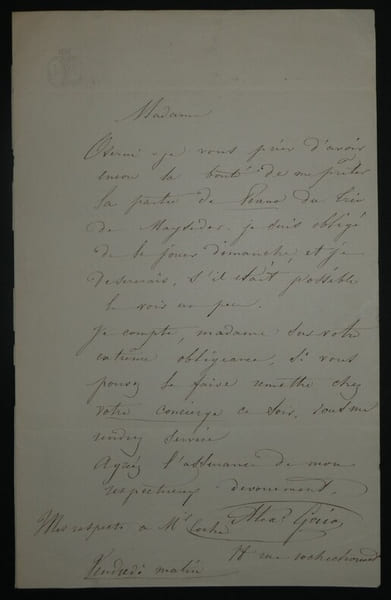 Madame
Oserai-je vous prier d'avoir
encore la bonté de me prêter
la partie de Piano du trio
de Mayseder. je suis obligé
de le jouer dimanche et je
desirerais, s'il était possible
le voir un peu.
Je compte, madame sur votre
extrême obligeance, si vous
pouvez le faire remettre chez
votre concierge ce soir, vous me
rendrez service
Agréez l'assurance de mon
respectueux devouement.
Mes respects a Mr
rue rochechouart
Vendredi matin